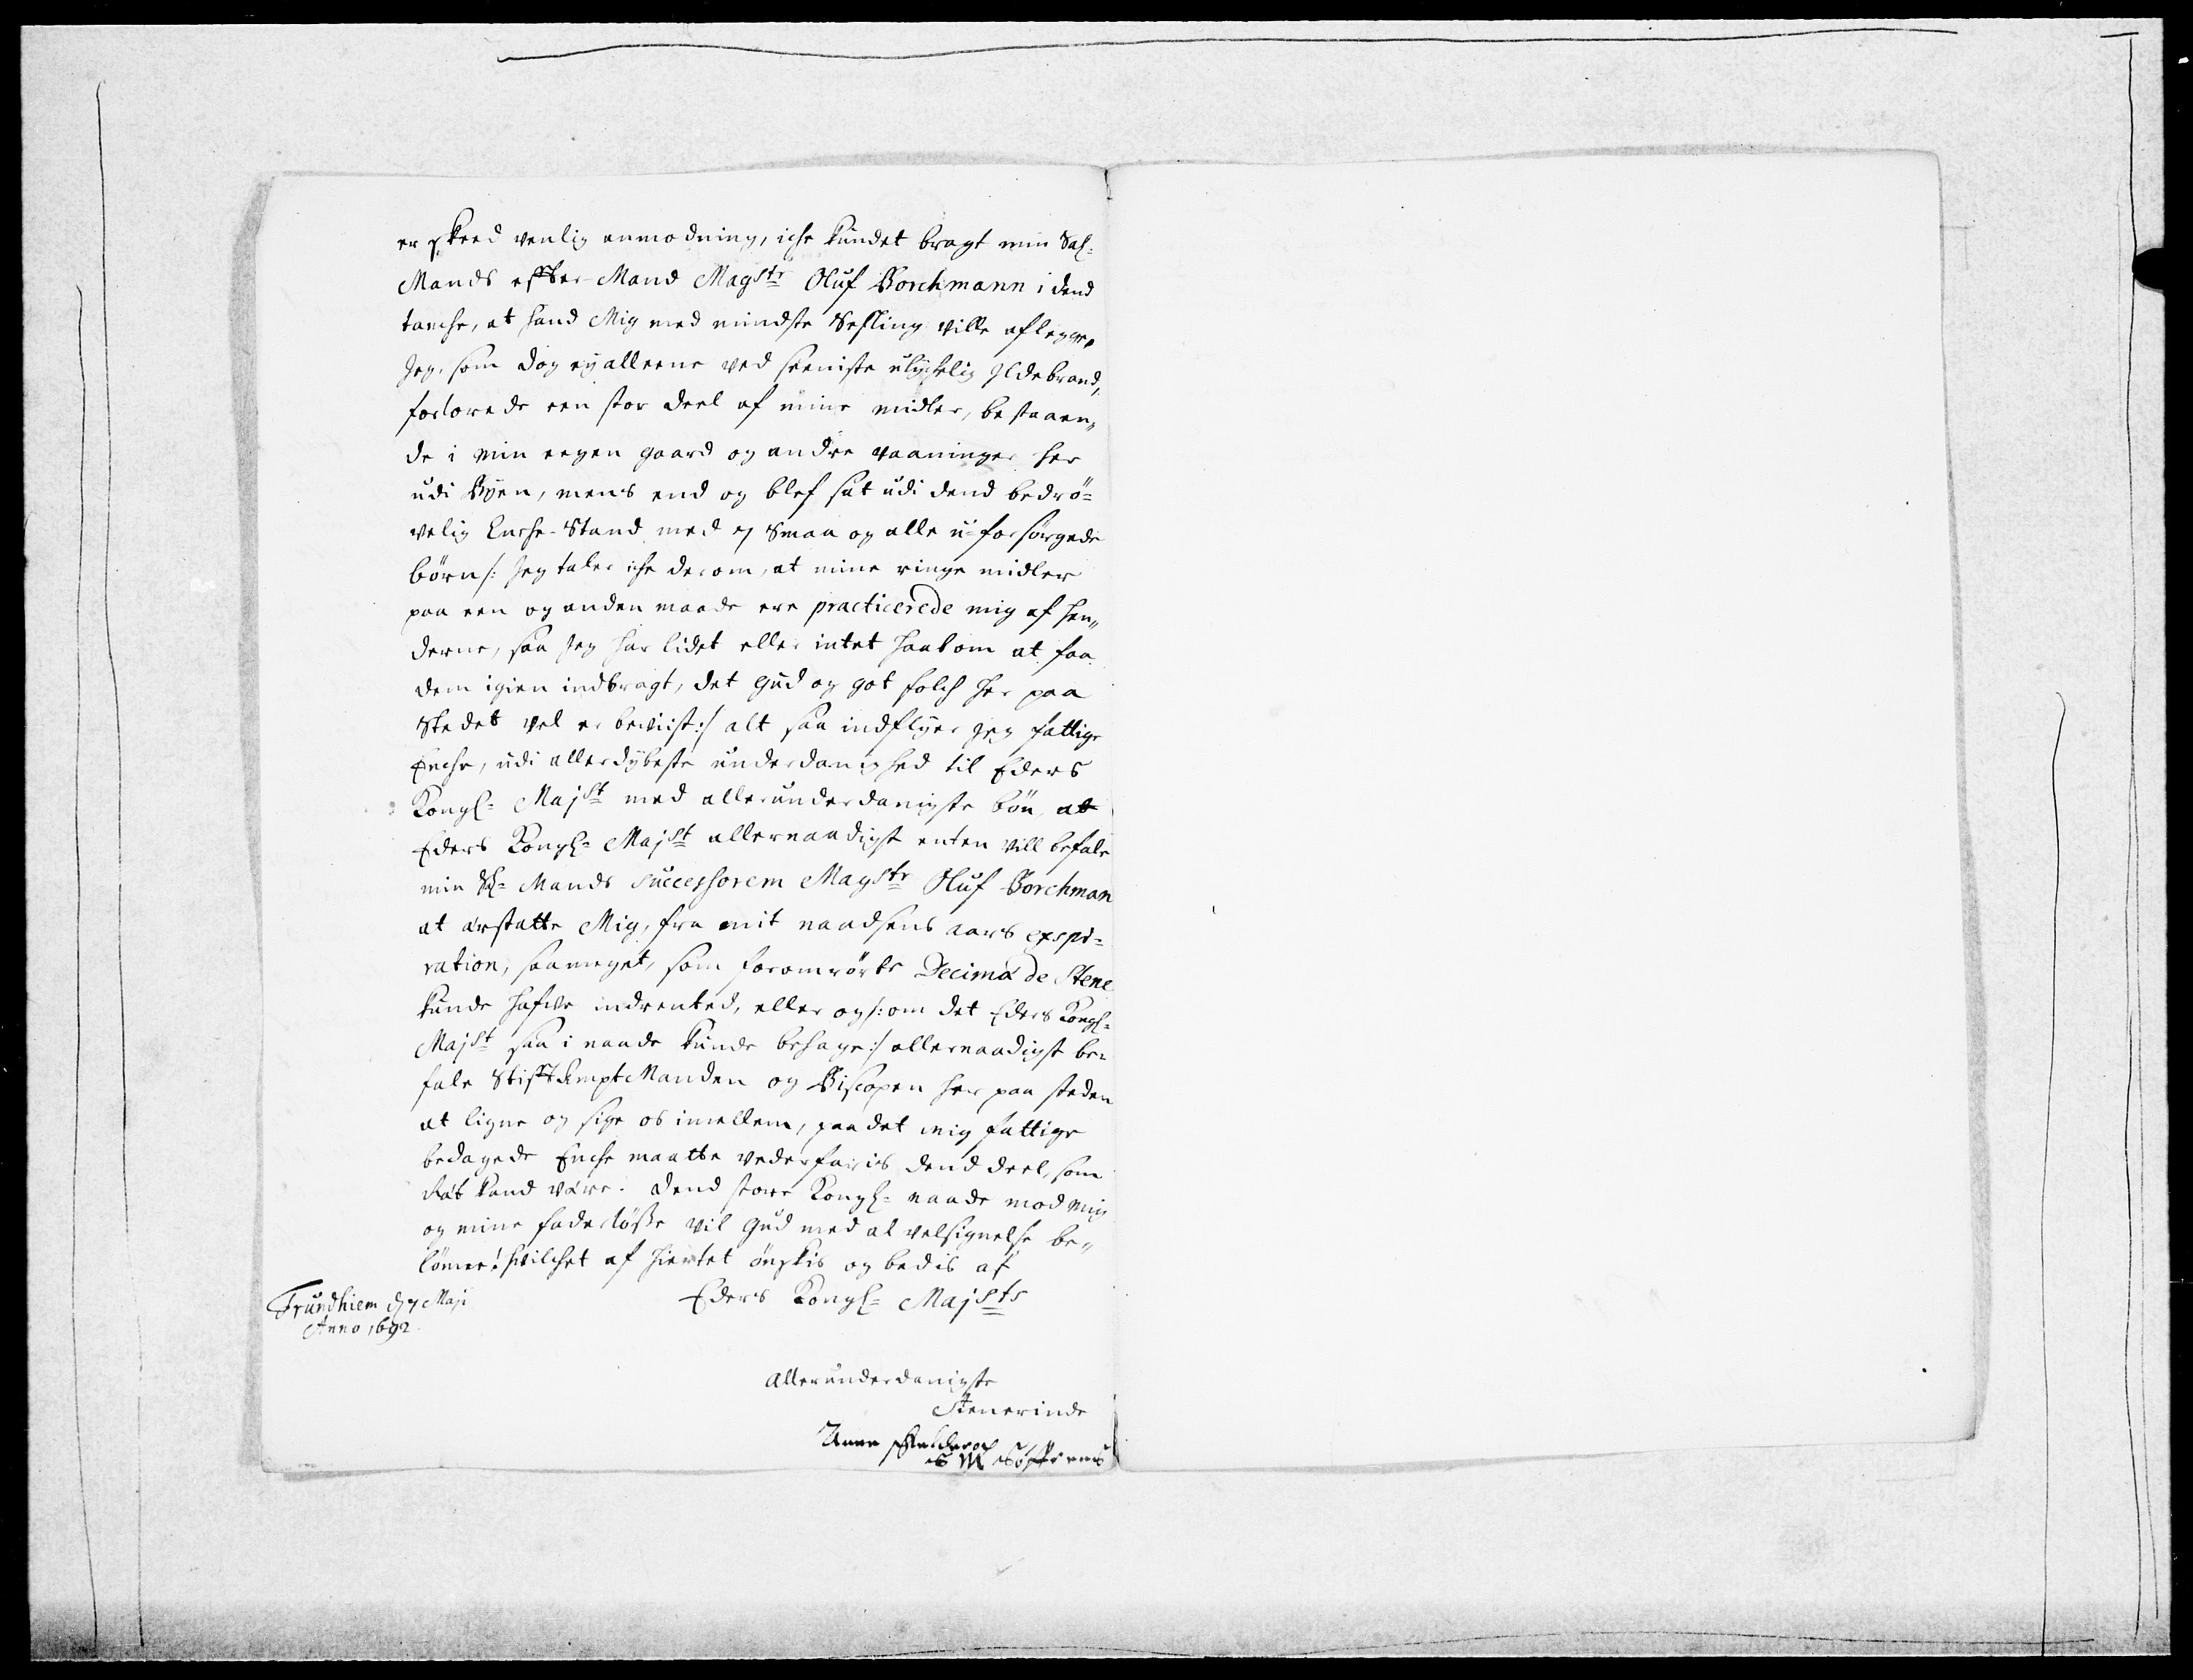 er skeed venlig anmodning, iche kundet bragt min Sal=
Mands effter-Mand Magstr Oluf Borchmann i dend
tanche, at hand Mig med mindste Schilling ville aflegge,
Jeg, som dog ey alleene ved seeniste ulychelig Ildebrand,
forlorede een stor deel af mine midler, bestaaen„
de i min eegen gaard og andre vaaninger her
udi Byen, mens end og blef sat udi dend bedrö=
velig Enche-Stand med 7 Smaa og alle u-forsörgede
börn /: Jeg taler iche derom, at mine ringe midler
paa een og anden maade ere practicerede mig af hen„
derne, saa Jeg har lidet eller intet haab om at faa
dem igien indbragt, det Gud og got folch her paa
Stedet vel er beviist :/ alt saa indflyer Jeg fattige
Enche, udi allerdybeste underdanighed til Eders
Kongl= Majst med allerunderdanigste bön, at
Eders Kongl= Majst allernaadigst enten vill befale
min Sl= Mands successorem Magstr Oluf Borchman
at erstatte Mig, fra mit naadsens aars exspi=
ration, saameget, som foromrörte Decimæ de Stene
kunde hafve indrented, eller og /: om det Eders Kongl=
Majst saa i naade kunde behage :/ allernaadigst be=
fale StifftAmptManden og Biscopen her paa steden
at ligne og sige os imellem, paa det mig fattige
bedagede Enche maatte vederfaris dend deel, som
Ræt kand være. Dend store Kongl= naade mod mig
og mine faderlösse vil Gud med al velsignelse be„
lönne! hvilchet af hiertet önskis og bedis af
Eders Kongl= Majsts
Trundhiem d 7 Maji
Anno 1692
Allerunderdanigste
Tienerinde
Anna
S M Söffrens